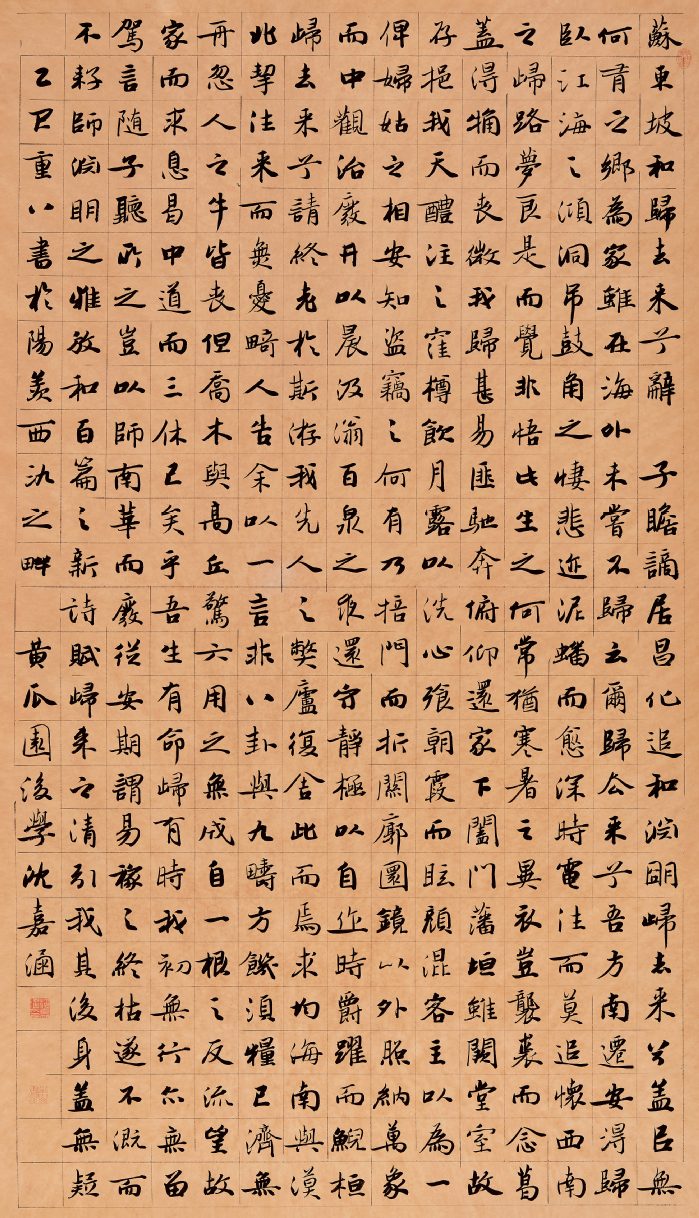 蘇東坡和歸去来兮辭 子瞻謫居昌化追和淵明歸去来兮蓋以無
何有之鄉為家雖在海外未嘗不歸云爾歸去来兮吾方南遷安得歸
臥江海之澒洞吊鼓角之悽悲迹泥蟠而愈深時電往而莫追懷西南
之歸路夢良是而覺非悟此生之何常猶寒暑之異衣豈襲裘而念葛
蓋得觕而喪微我歸甚易匪馳奔俯仰還家下闔門藩垣雖闕堂室故
存挹我天醴注之窪樽飲月露以洗心飱朝霞而眩顏混客主以為一
俾婦姑之相安知盜竊之何有乃掊門而折關廓圜鏡以外照納萬象
而中觀治廢井以晨汲滃百泉之夜還守靜極以自作時爵躍而鯢桓
歸去来兮請終老於斯游我先人之弊廬復舍此而焉求均海南與漠
北挈往来而無憂畸人告余以一言非八卦與九疇方飢須糧已濟無
舟忽人之牛皆喪但喬木與高丘驚六用之無成自一根之反流望故
家而求息曷中道而三休已矣乎吾生有命歸有時我初無行亦無留
駕言随子聽所之豈以師南華而廢從安期謂易稼之終枯遂不溉而
不耔師淵明之雅放和百篇之新詩賦歸来之清引我其後身蓋無疑
乙巳重八書於陽羨西氿之畔 黃瓜園後學沈嘉涵